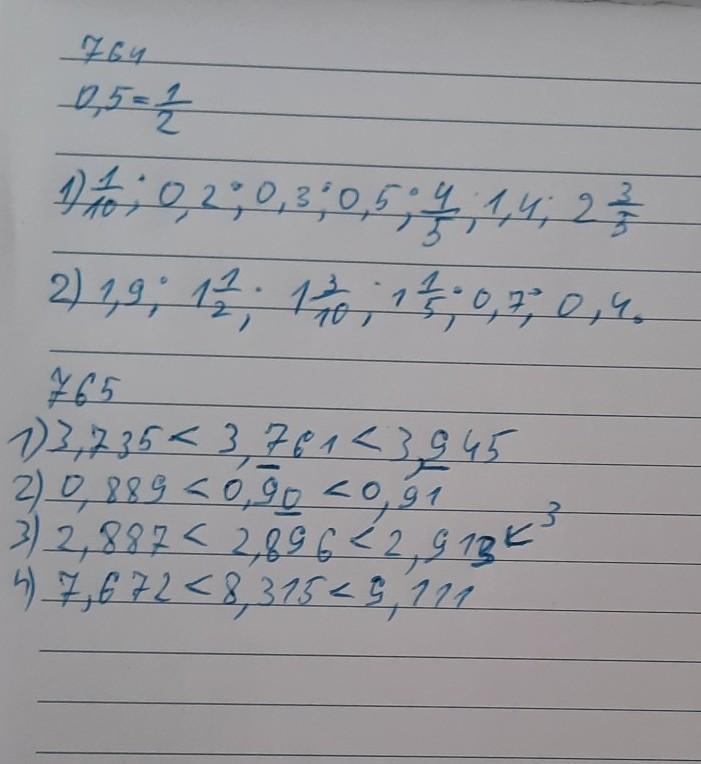 764
0,5=1/2
1) 1/10; 0,2; 0,3; 0,5; 4/5; 1,4; 2 3/5
2) 1,9; 1 1/2; 1 3/10; 1 1/5; 0,7; 0,4.
765
1) 3,735 < 3,761 < 3,945
2) 0,889 < 0,90 < 0,91
3) 2,887 < 2,896 < 2,913 < 3
4) 7,672 < 8,315 < 9,111